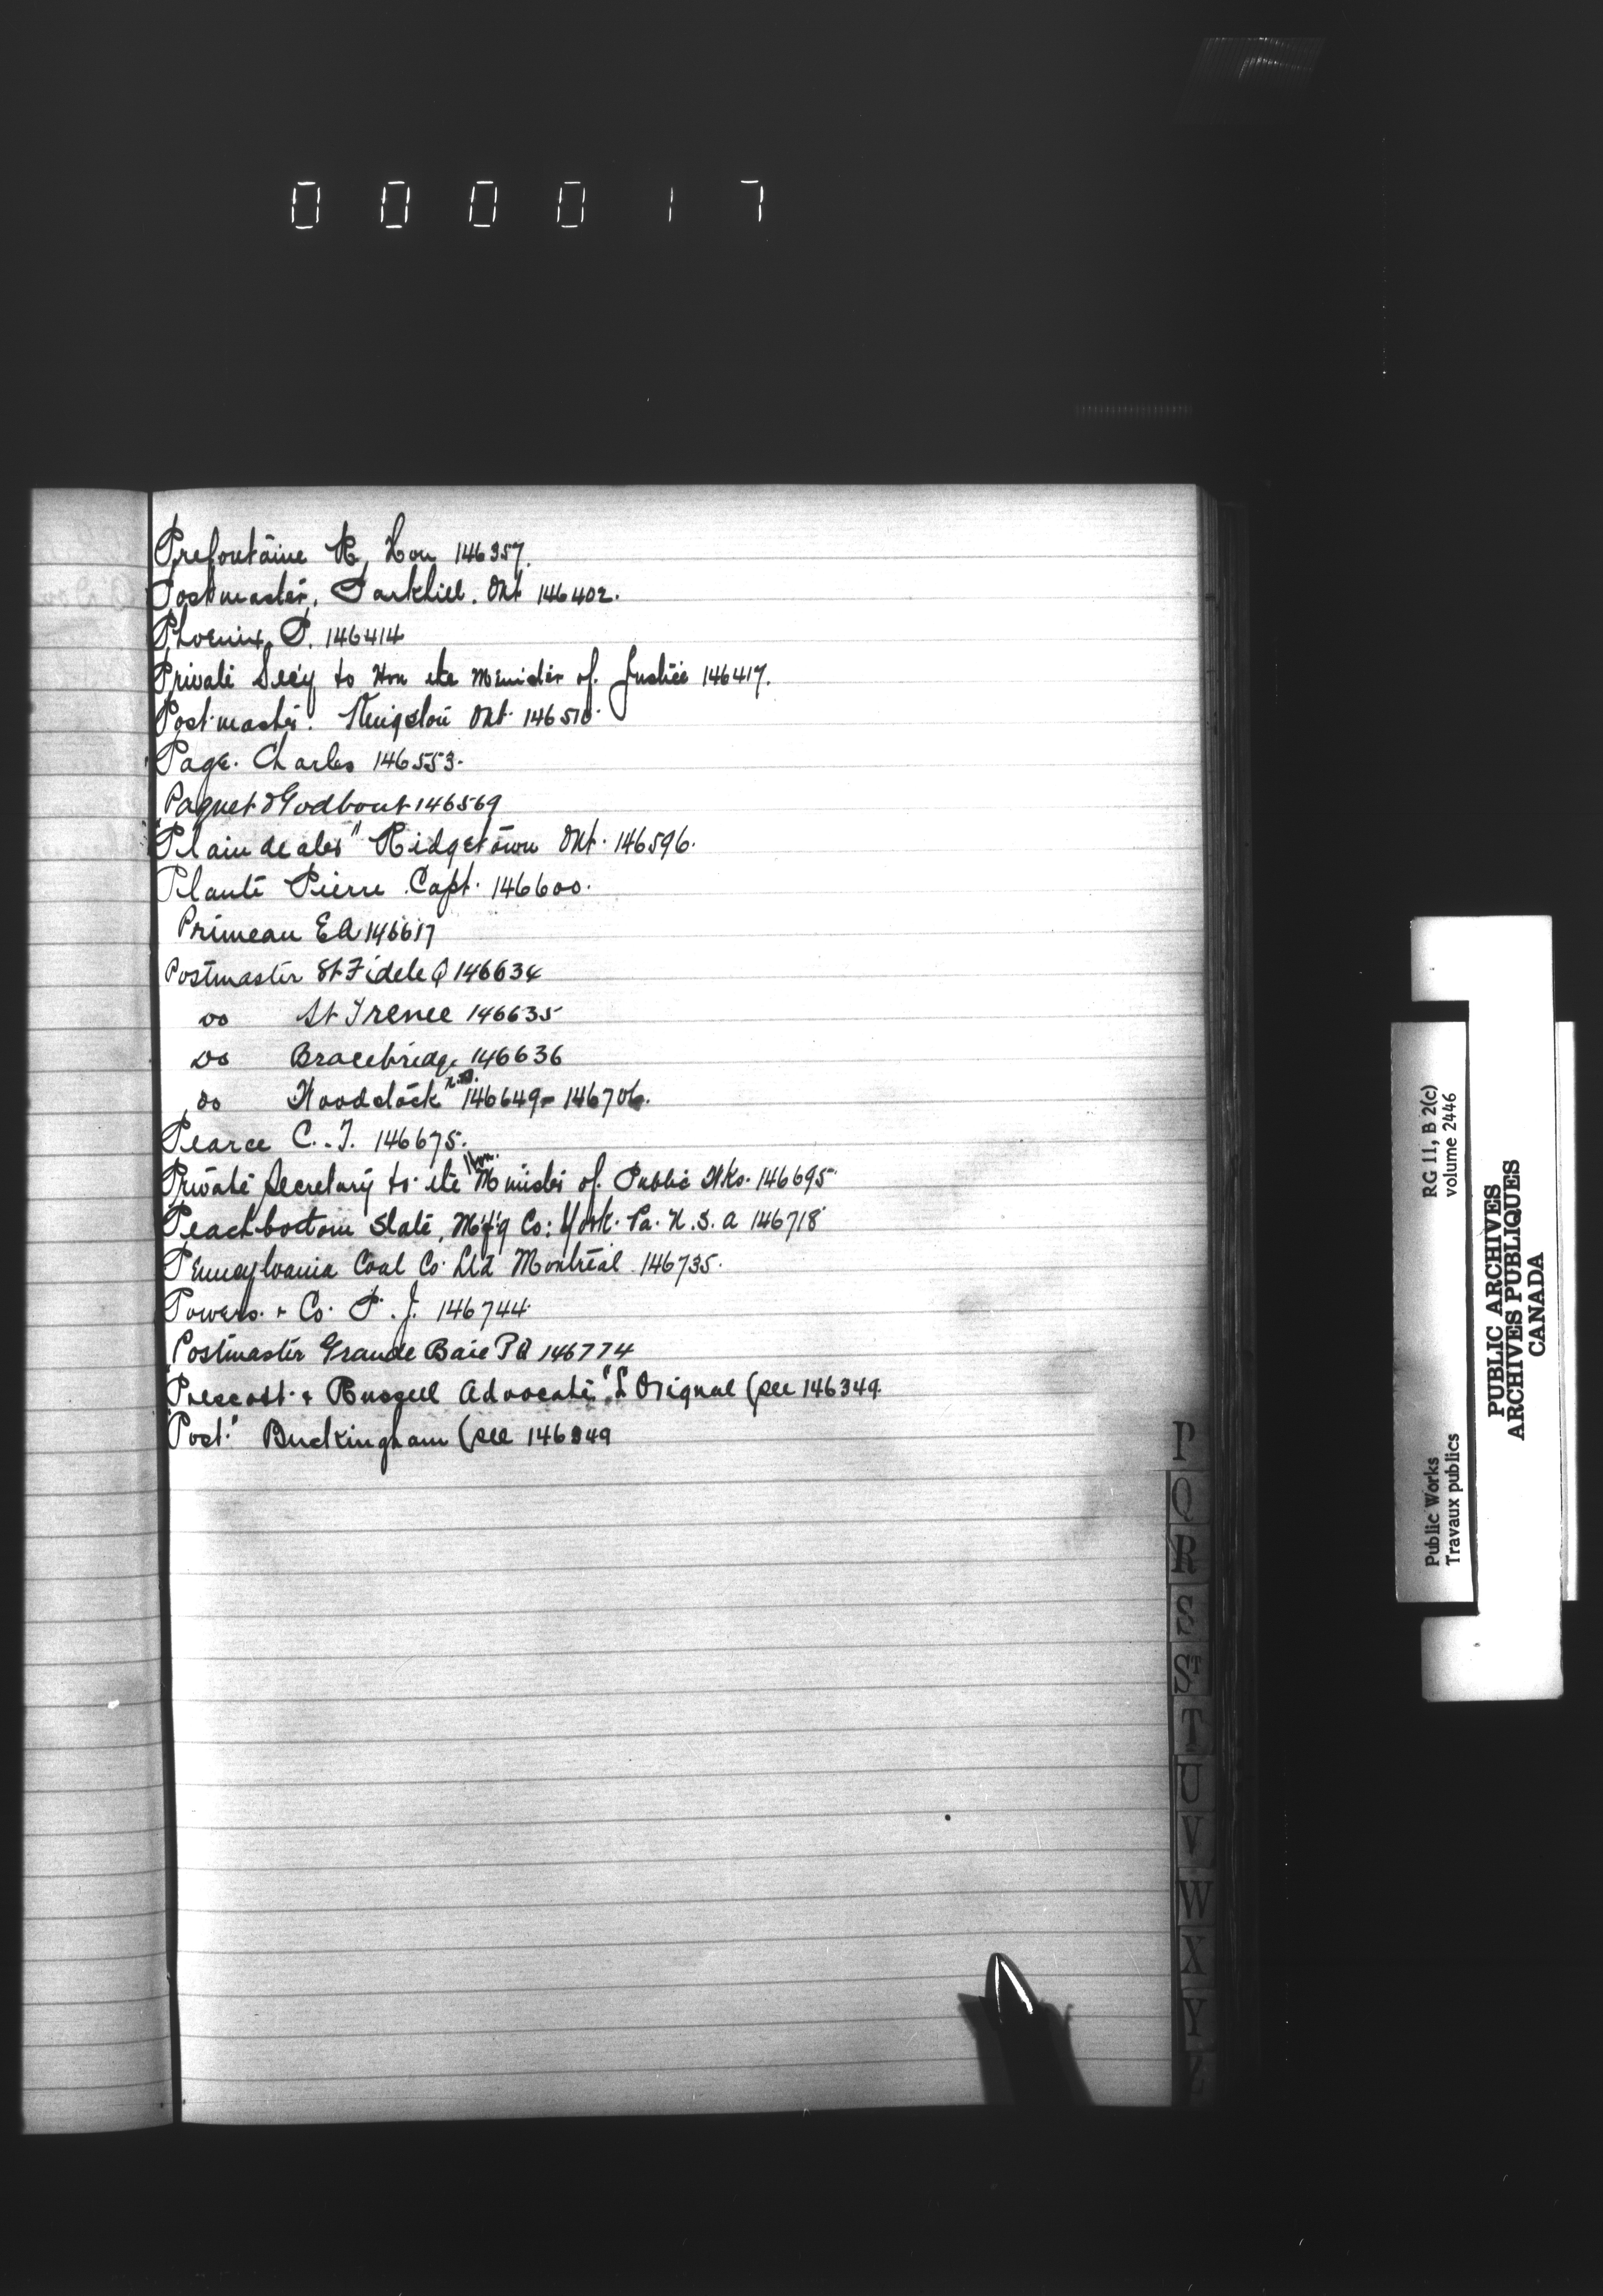 000017
Prefontaine R, Hon 146357.
Postmaster. Parkhill. Ont 146402.
Phoenix, P. 146414
Private Sec'y to Hon the Minister of Justice 146417.
Postmaster. Kingston Ont. 146510.
Page. Charles 146553.
Paquet & Godbout 146569
"Plaindealer" Ridgetown Ont. 146596.
Plante Pierre Capt. 146600.
Primeau EA 146617
Postmaster St Fidele Q 146634
do St Irenee 146635
do Bracebridge 146636
do Woodstock N.B. 146649 - 146706.
Pearce C. T. 146675.
Private Secretary to the Hon. Minister of Public Wks. 146695
Peachbottom Slate, M'f'g Co: York. Pa. U.S.A 146718
Pennsylvania Coal Co. Ltd Montreal 146735.
Powers. & Co. P. J. 146744
Postmaster Grande Baie PQ 146774
"Prescott & Russell Advocate" L'Orignal (see 146349.
"Post" Buckingham (see 146349
P
Q
R
S
ST
T
U
V
W
X
Y
Z
Public Works
Travaux publics
RG 11, B 2(c)
volume 2446
PUBLIC ARCHIVES
ARCHIVES PUBLIQUES
CANADA